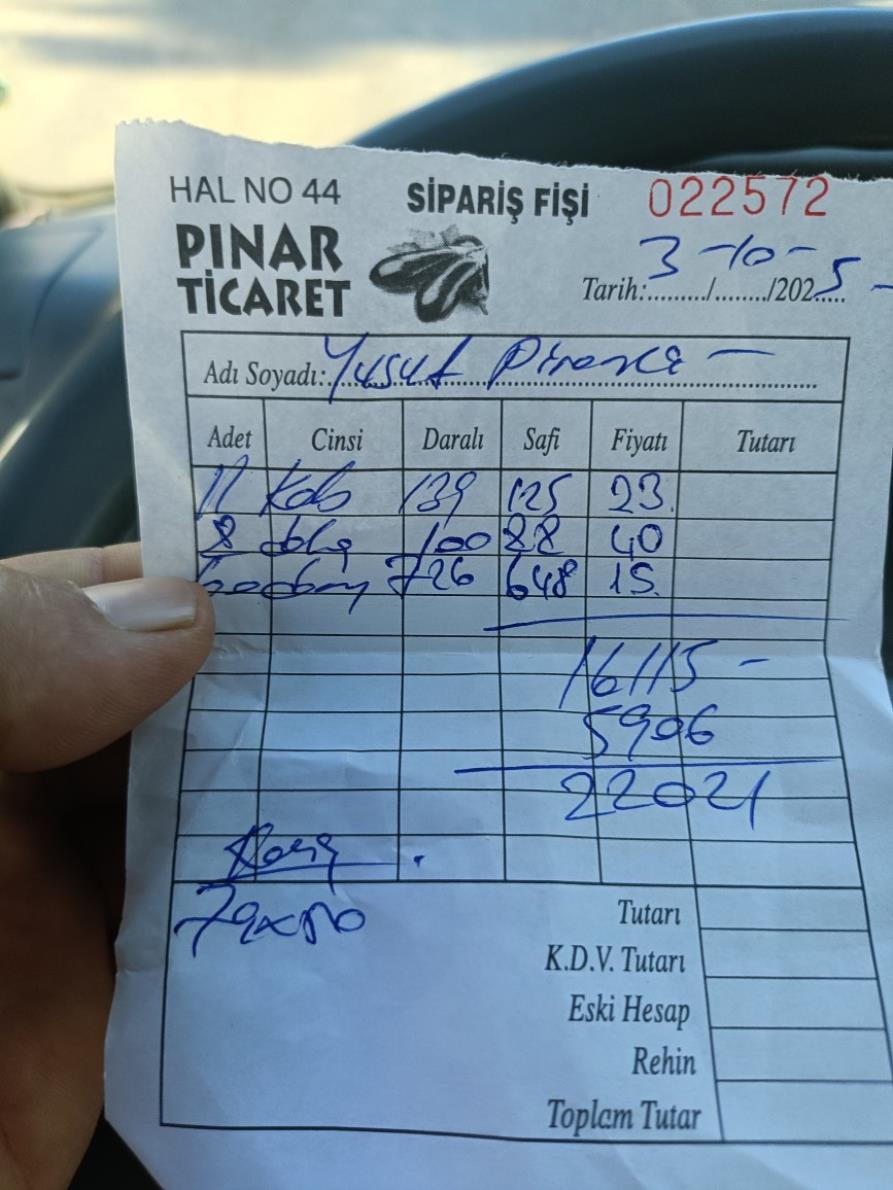 HAL NO 44 SİPARİŞ FİŞİ 022572
PINAR
TİCARET
Tarih:........./......../202..... 3-10- 5-
Adı Soyadı: Yusuf
Adet Cinsi Daralı Safi Fiyatı Tutarı
11 Kab 139 125 23
8 100 88 40
726 648 15
16115 -
5906
22021
Tutarı
K.D.V. Tutarı
Eski Hesap
Rehin
Toplam Tutar